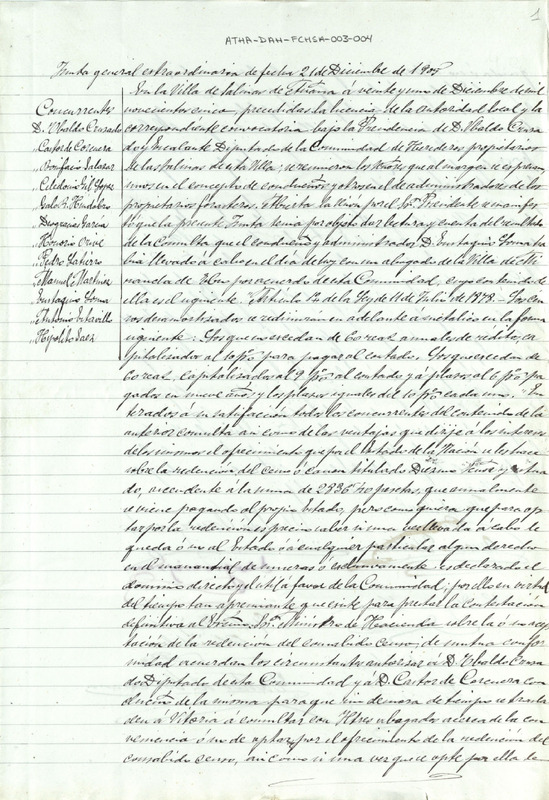 1
ATHA-DAH-FCHSA-003-004
Junta general extraordinaria de fecha 21 de Diciembre de 1905
Concurrentes
D. Ubaldo Cruzado
Castor de Corcuera
Bonifacio Salazar
Celedonio Gil Lopez
Galo F. Mendulve
Deogracias Garcia
Honorio Orive
Pedro Gutierrez
Manuel Martinez
Eustaquio Soma
Antonio Estavillo
Hipolito Saez
En la Villa de Salinas de Añana á veinte y uno de Diciembre de mil
novecientos cinco, precedidas la licencia de la Autoridad local y la
correspondiente convocatoria bajo la Presidencia de D. Ubaldo Cruza
do y Escalante Diputado de la Comunidad de Herederos propietarios
de las Salinas de esta Villa; se reunieron los Señores que al margen se expresan
unos en el concepto de condueños y otros en el de administradores de los
propietarios forasteros. Abierta la sesión por el Sr. Presidente se manifes
tó que la presente Junta tenia por objeto dar lectura y cuenta del resultado
de la Consulta que el condueño y administrador D. Eustaquio Soma ha
bia llevado á cabo en el dia de hoy con un abogado de la Villa de Mi
randa de Ebro por acuerdo de esta Comunidad, cuyo contenido de
ella es el siguiente: "Articulo 12 de la Ley de 11 de Julio de 1878 - Los cen
sos desamortizados se redimirán en adelante á metalico en la forma
siguiente: Los que no excedan de 60 reales anuales de rédito, ca
pitalizados al 10 p% para pagar al contado. Los que excedan de
60 reales, capitalizados al 9 p% al contado y á plazos al 6 p% pa
gados en nueve años y los plazos iguales del 10 p% cada uno. En
terados á su satisfación todos los concurrentes del contenido de la
anterior consulta asi como de las ventajas que dirije á los intereses
de los mismos el ofrecimiento que por el Estado de la Nación se les hace
sobre la redención del censo ó canon titulado Diezmo
do, ascendente á la suma de 2836'40 pesetas, que anualmente
se viene pagando al propio Estado, pero como quiera que para op
tar por la redención es preciso saber si una vez llevada á cabo le
queda ó no al Estado ó á cualquier particular algun derecho
en el manantial de mueras ó exclusivamente es declarado el
dominio directo y util á favor de la Comunidad; por ello en virtud
del tiempo tan apremiante que existe para prestar la contestación
definitiva al Excmo. Sr. Ministro de Hacienda sobre la ó no acep
tación de la redención del consabido censo; de mutua confor
midad acuerdan los circunstantes autorizar á D. Ubaldo Cruza
do Diputado de esta Comunidad y á D. Castor de Corcuera con
dueño de la misma para que sin demora de tiempo se trasla
den á Vitoria á consultar con tres abogados acerca de la con
veniencia ó no de optar por el ofrecimiento de la redención del
consabido censo, asi como si una vez que se opte por ella le